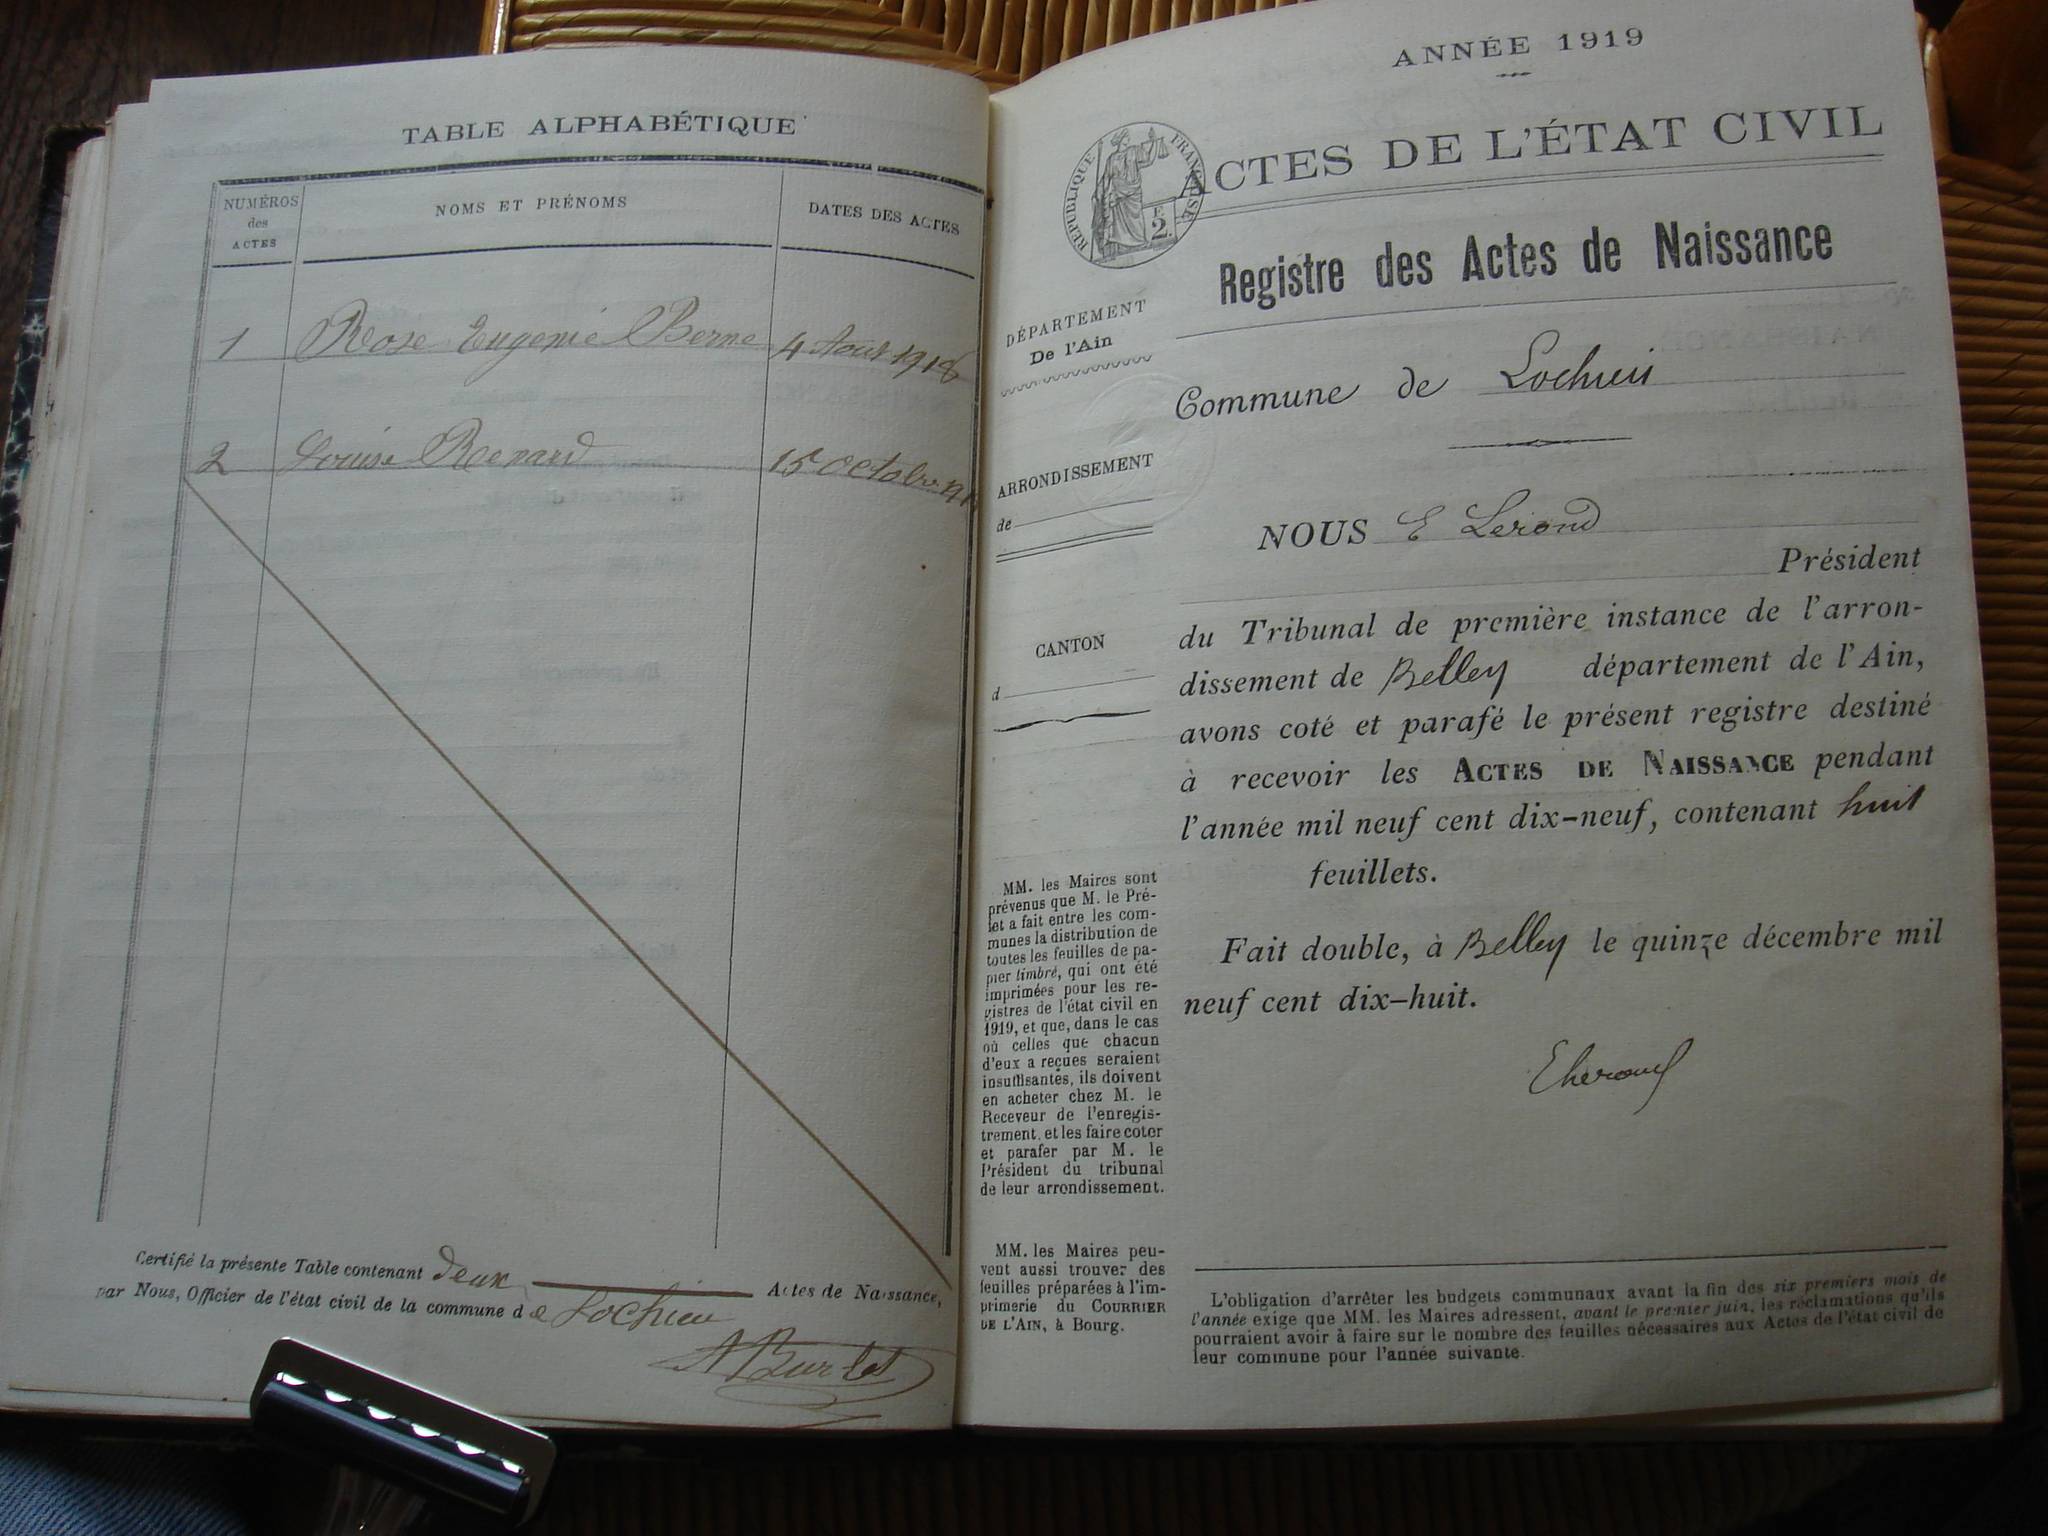 TABLE ALPHABÉTIQUE
NUMÉROS
des
ACTES
NOMS ET PRÉNOMS
DATES DES ACTES
1 Rose Eugenie Berne 4 Aout 1918
2 Louise Renard 15 Octobre
Certifié la présente Table contenant deux Actes de Naissance,
par Nous, Officier de l'état civil de la commune de Lochieu
ABurlet
ANNÉE 1919
RÉPUBLIQUE FRANÇAISE
E
2.
ACTES DE L'ÉTAT CIVIL
Registre des Actes de Naissance
DÉPARTEMENT
De l'Ain
ARRONDISSEMENT
de
CANTON
d
MM. les Maires sont
prévenus que M. le Pré-
fet a fait entre les com-
munes la distribution de
toutes les feuilles de pa-
pier timbré, qui ont été
imprimées pour les re-
gistres de l'état civil en
1919, et que, dans le cas
où celles que chacun
d'eux a reçues seraient
insuffisantes, ils doivent
en acheter chez M. le
Receveur de l'enregis-
trement, et les faire coter
et parafer par M. le
Président du tribunal
de leur arrondissement.
MM. les Maires peu-
vent aussi trouver des
feuilles préparées à l'im-
primerie du COURRIER
DE L'AIN, à Bourg.
Commune de Lochieu
NOUS E Lerond
Président
du Tribunal de première instance de l'arron-
dissement de Belley département de l'Ain,
avons coté et parafé le présent registre destiné
à recevoir les ACTES DE NAISSANCE pendant
l'année mil neuf cent dix-neuf, contenant huit
feuillets.
Fait double, à Belley le quinze décembre mil
neuf cent dix-huit.
L'obligation d'arrêter les budgets communaux avant la fin des six premiers mois de
l'année exige que MM. les Maires adressent, avant le premier juin, les réclamations qu'ils
pourraient avoir à faire sur le nombre des feuilles nécessaires aux Actes de l'état civil de
leur commune pour l'année suivante.